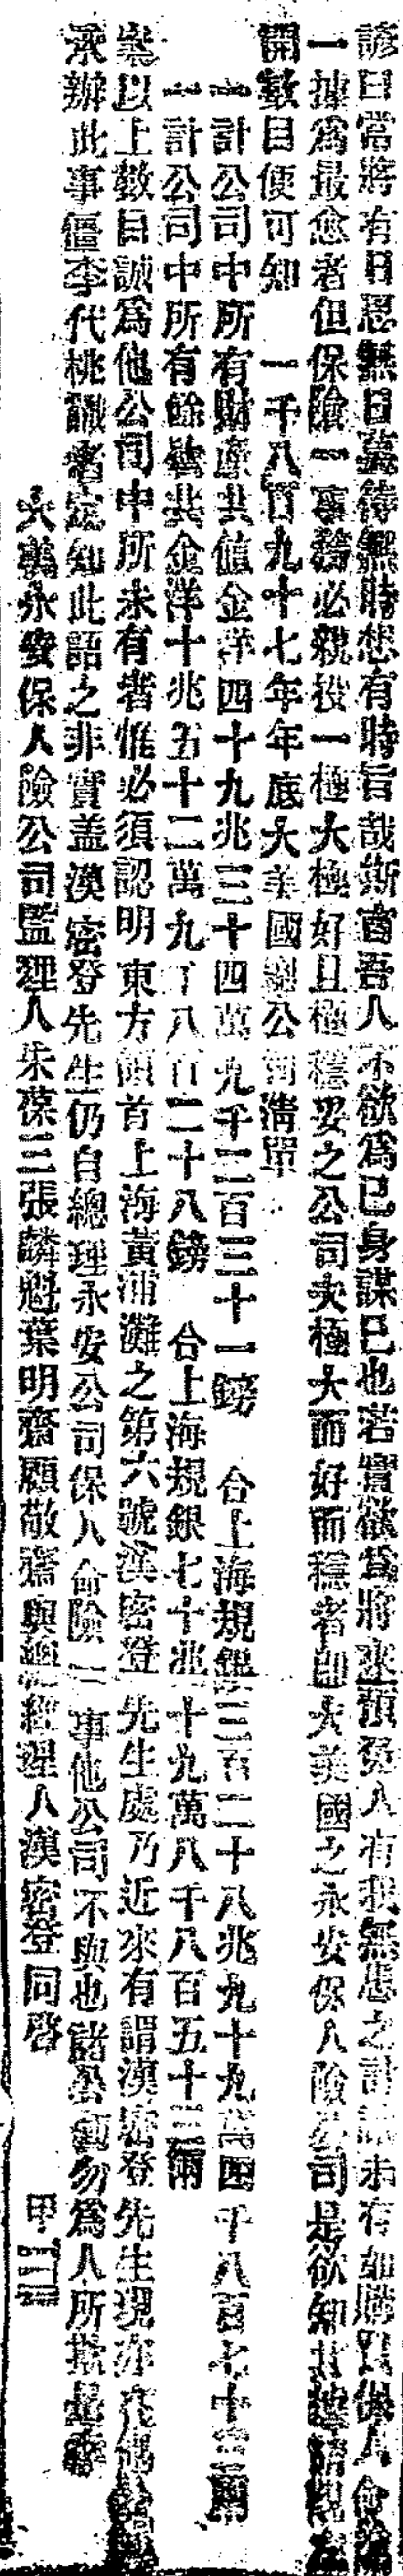 諺曰常將有日思無日莫待無時想有時旨哉斯言吾人不欲為己身謀已也若實欲為將來預妥人有我無患之計誠未有如購買保人命險
一據為最愈者但保險一事務必親投一極大極好且極穩妥之公司夫極大而好而穩者即大美國之永安保人險公司是欲知其
開數目便可知　一千八百九十七年年底大美國該公司清單
一計公司中所有財產共值金洋四十九兆三十四萬九千二百三十一鎊　合上海規銀三百二十八兆九十九萬四千八百七十三兩
一計公司中所有餘共金洋十兆五十二萬九千八百二十八鎊　合上海規銀七十兆十九萬八千八百五十三兩
以上數目誠為他公司中所未有者惟必須認明東方領首上海黃浦灘之第六號漢密登先生處乃近來有謂漢密登先生現亦
承辦此事僵李代桃識者定知此語之非實蓋漢密登先生仍自總理永安公司保人命險一事他公司不與也諸公勿為人所
大美永安保人險公司監理人朱葆三張麟魁葉明齋顧敬齋與經理人漢密登同啓　甲